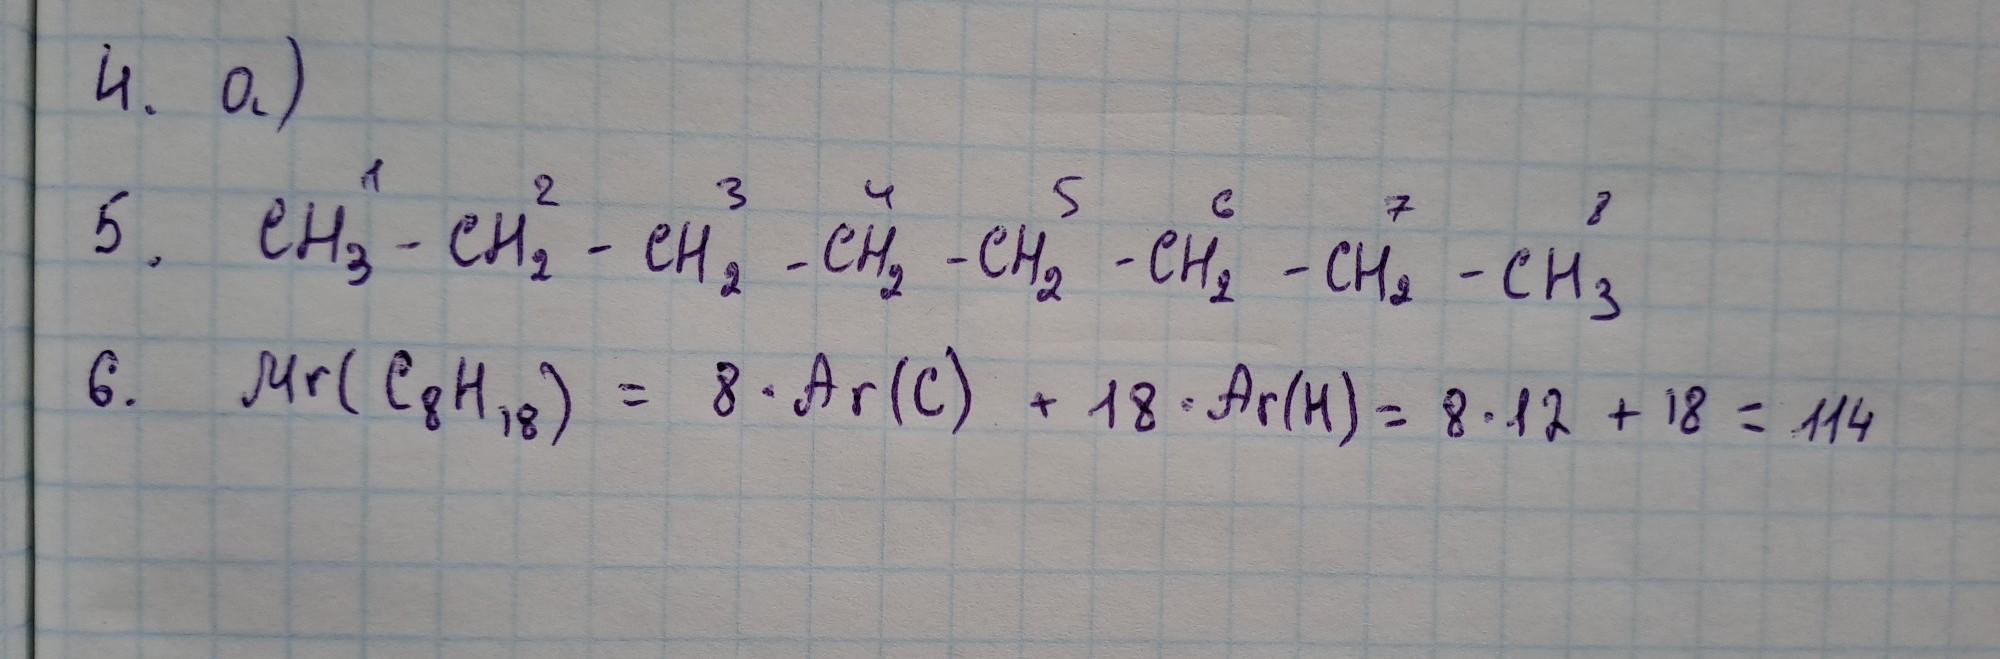 4. a)
5. CH₃¹ - CH₂² - CH₂³ - CH₂⁴ - CH₂⁵ - CH₂⁶ - CH₂⁷ - CH₃⁸
6. Mr(C₈H₁₈) = 8 · Ar(C) + 18 · Ar(H) = 8 · 12 + 18 = 114